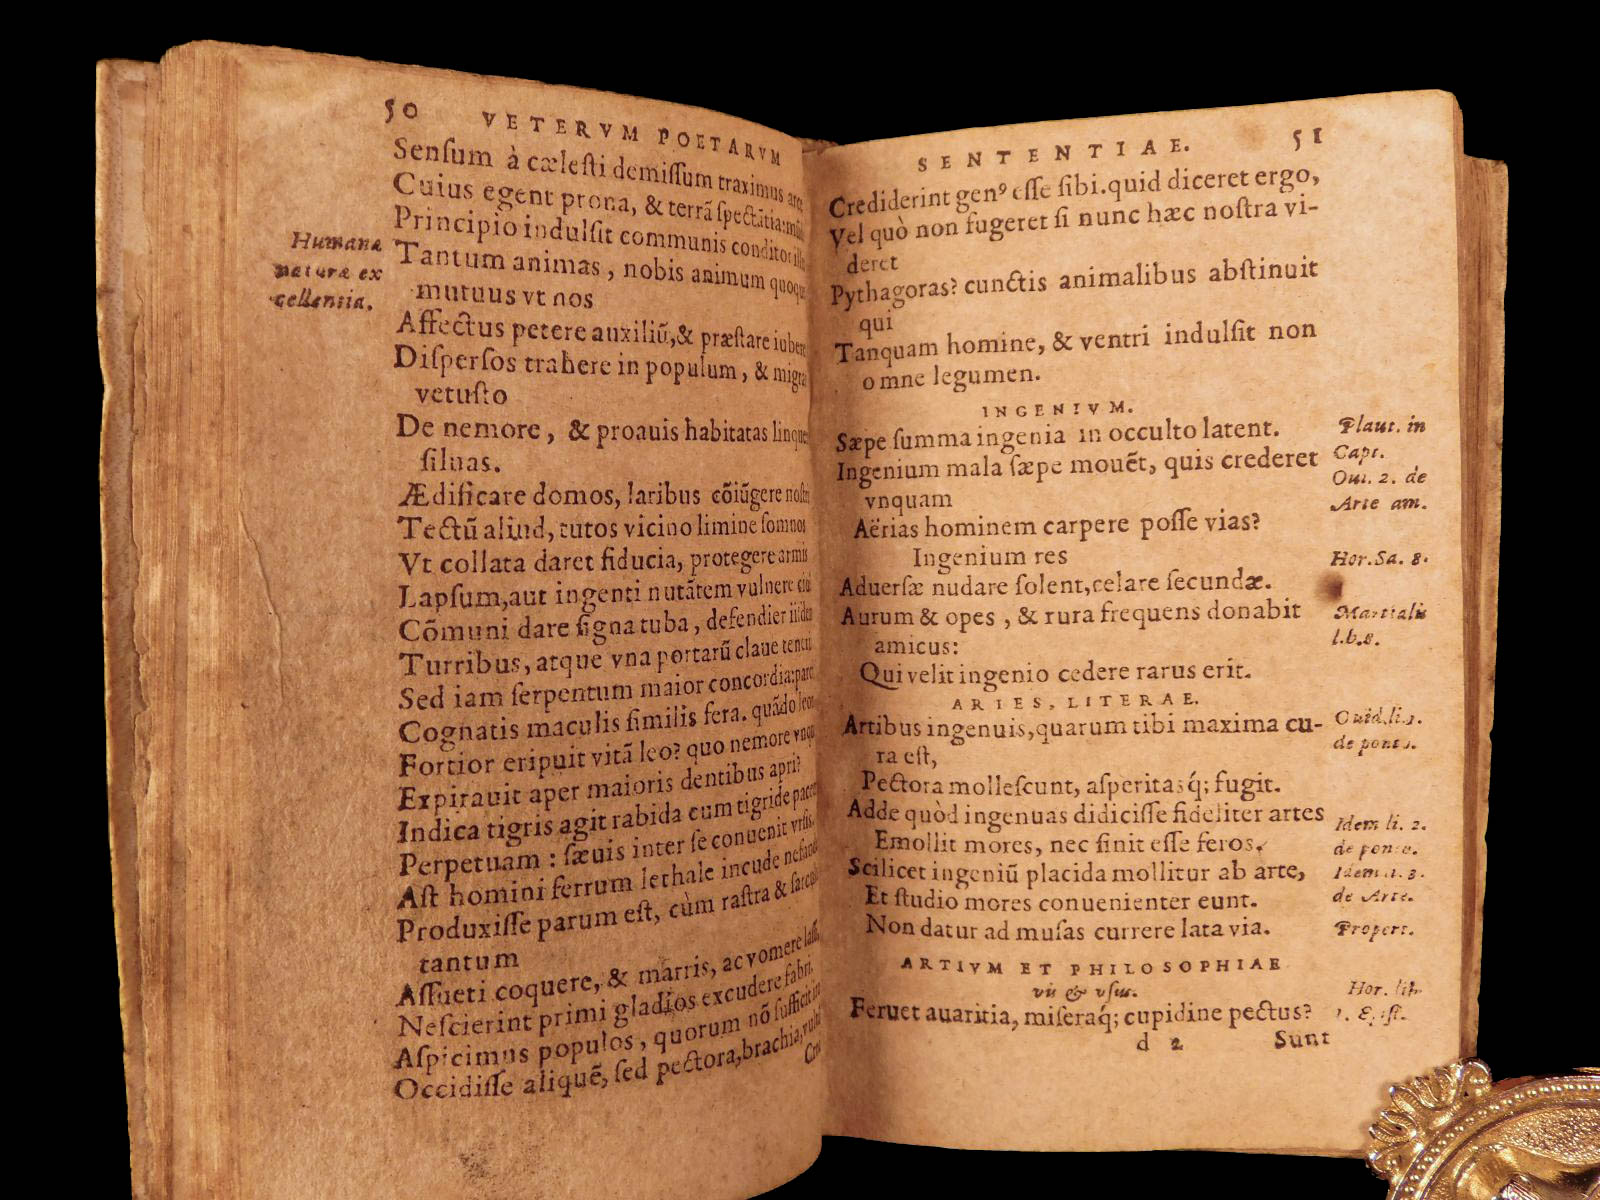 50 VETERVM POETARVM
Senſum à cæleſti demiſſum traximus arce
Cuius egent prona, & terrã ſpectãtia:
Principio indulſit communis conditor
Humana
naturæ ex
cellentia.
Tantum animas, nobis animum quoque
mutuus vt nos
Affectus petere auxiliũ,& præſtare iubere
Diſperſos trahere in populum, & migra
vetuſto
De nemore, & proauis habitatas linque
ſiluas.
Ædificare domos, laribus cõiũgere
Tectũ aliud, tutos vicino limine ſomnos
Vt collata daret fiducia, protegere armis
Lapſum,aut ingenti nutãtem vulnere
Cõmuni dare ſigna tuba, defendier
Turribus, atque vna portarũ claue
Sed iam ſerpentum maior concordia:
Cognatis maculis ſimilis fera. quãdo
Fortior eripuit vitã leo? quo nemore
Expirauit aper maioris dentibus apri?
Indica tigris agit rabida cum tigride
Perpetuam : ſæuis inter ſe conuenit vrſis.
Aſt homini ferrum lethale incude
Produxiſſe parum eſt, cùm raſtra &
tantum
Aſſueti coquere, & marris, ac vomere
Neſcierint primi gladios excudere fabri.
Aſpicimus populos, quorum nõ ſufficit
Occidiſſe aliquẽ, ſed pectora,brachia,
SENTENTIAE. 51
Crediderint genꝰ eſſe ſibi.quid diceret ergo,
Vel quò non fugeret ſi nunc hæc noſtra vi-
deret
Pythagoras? cunctis animalibus abſtinuit
qui
Tanquam homine, & ventri indulſit non
omne legumen.
INGENIVM.
Sæpe ſumma ingenia in occulto latent.
Plaut. in
Capt.
Ingenium mala ſæpe mouẽt, quis crederet
vnquam
Oui. 2. de
Arte am.
Aërias hominem carpere poſſe vias?
Ingenium res
Hor.Sa. 8.
Aduerſæ nudare ſolent,celare ſecundæ.
Aurum & opes , & rura frequens donabit
amicus:
Martialis
l.b.8.
Qui velit ingenio cedere rarus erit.
ARTES, LITERAE.
Artibus ingenuis,quarum tibi maxima cu-
ra eſt,
Ouid.li.1.
de
Pectora molleſcunt, aſperitasq́; fugit.
Adde quòd ingenuas didiciſſe fideliter artes
Idem li. 2.
de
Emollit mores, nec ſinit eſſe feros.
Scilicet ingeniũ placida mollitur ab arte,
Idem 3.
de Arte.
Et ſtudio mores conuenienter eunt.
Non datur ad muſas currere lata via.
Propert.
ARTIVM ET PHILOSOPHIAE
vis & vſus.
Feruet auaritia, miſeraq́; cupidine pectus?
Hor. lib.
1. Epiſt.
d 2 Sunt